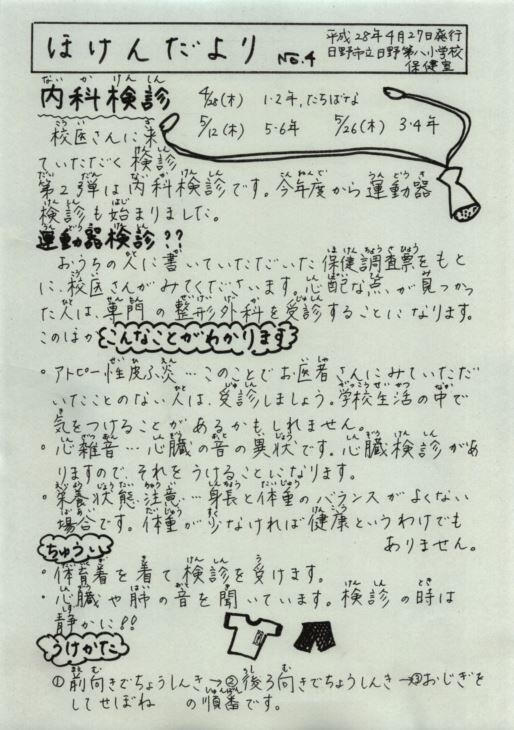 ほけんだより No.4
平成28年4月27日発行
日野市立日野第八小学校
保健室
内科検診
4/28(木) 1・2年,たちばな
5/12(木) 5・6年 5/26(木) 3・4年
校医さんに来
ていただく検診
第2弾は内科検診です。今年度から運動器
検診も始まりました。
運動器検診??
おうちの人に書いていただいた保健調査票をもと
に、校医さんがみてくださいます。心配な点が見つかっ
た人は、専門の整形外科を受診することになります。
このほか こんなことがわかります
・アトピー性皮ふ炎…このことでお医者さんにみていただ
いたことのない人は、受診しましょう。学校生活の中で
気をつけることがあるかもしれません。
・心雑音…心臓の音の異状です。心臓検診があ
りますので、それをうけることになります。
・栄養状態注意…身長と体重のバランスがよくない
場合です。体重が少なければ健康というわけでも
ありません。
ちゅうい
・体育着を着て検診を受けます。
・心臓や肺の音を聞いています。検診の時は
静かに!!
うけかた
①前向きでちょうしんき→②後ろ向きでちょうしんき→③おじぎを
してせぼね の順番です。